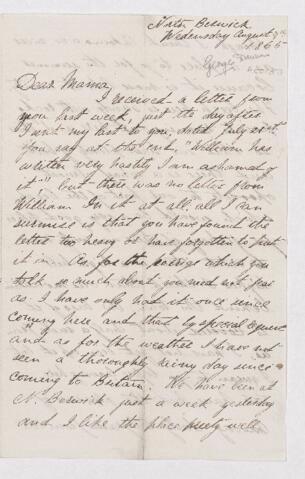 North Berwick
Wednesday August 9th
1865
Dear Mama,
I received a letter from
you last week, just the day after
I sent my last to you, dated July 21st.
You say at the end, "William has
written very hastily I am ashamed of
it", but there was no letter from
William in it at all, all I can
surmise is that you have found the
letter too heavy or have forgotten to put
it in. As for the porridge which you
talk so much about you need not fear
as I have only had it once since
coming here and that by special request
and as for the weather I have not
seen a thoroughly rainy day since
coming to Britain. We have been at
N. Berwick just a week yesterday
and I like the place pretty well